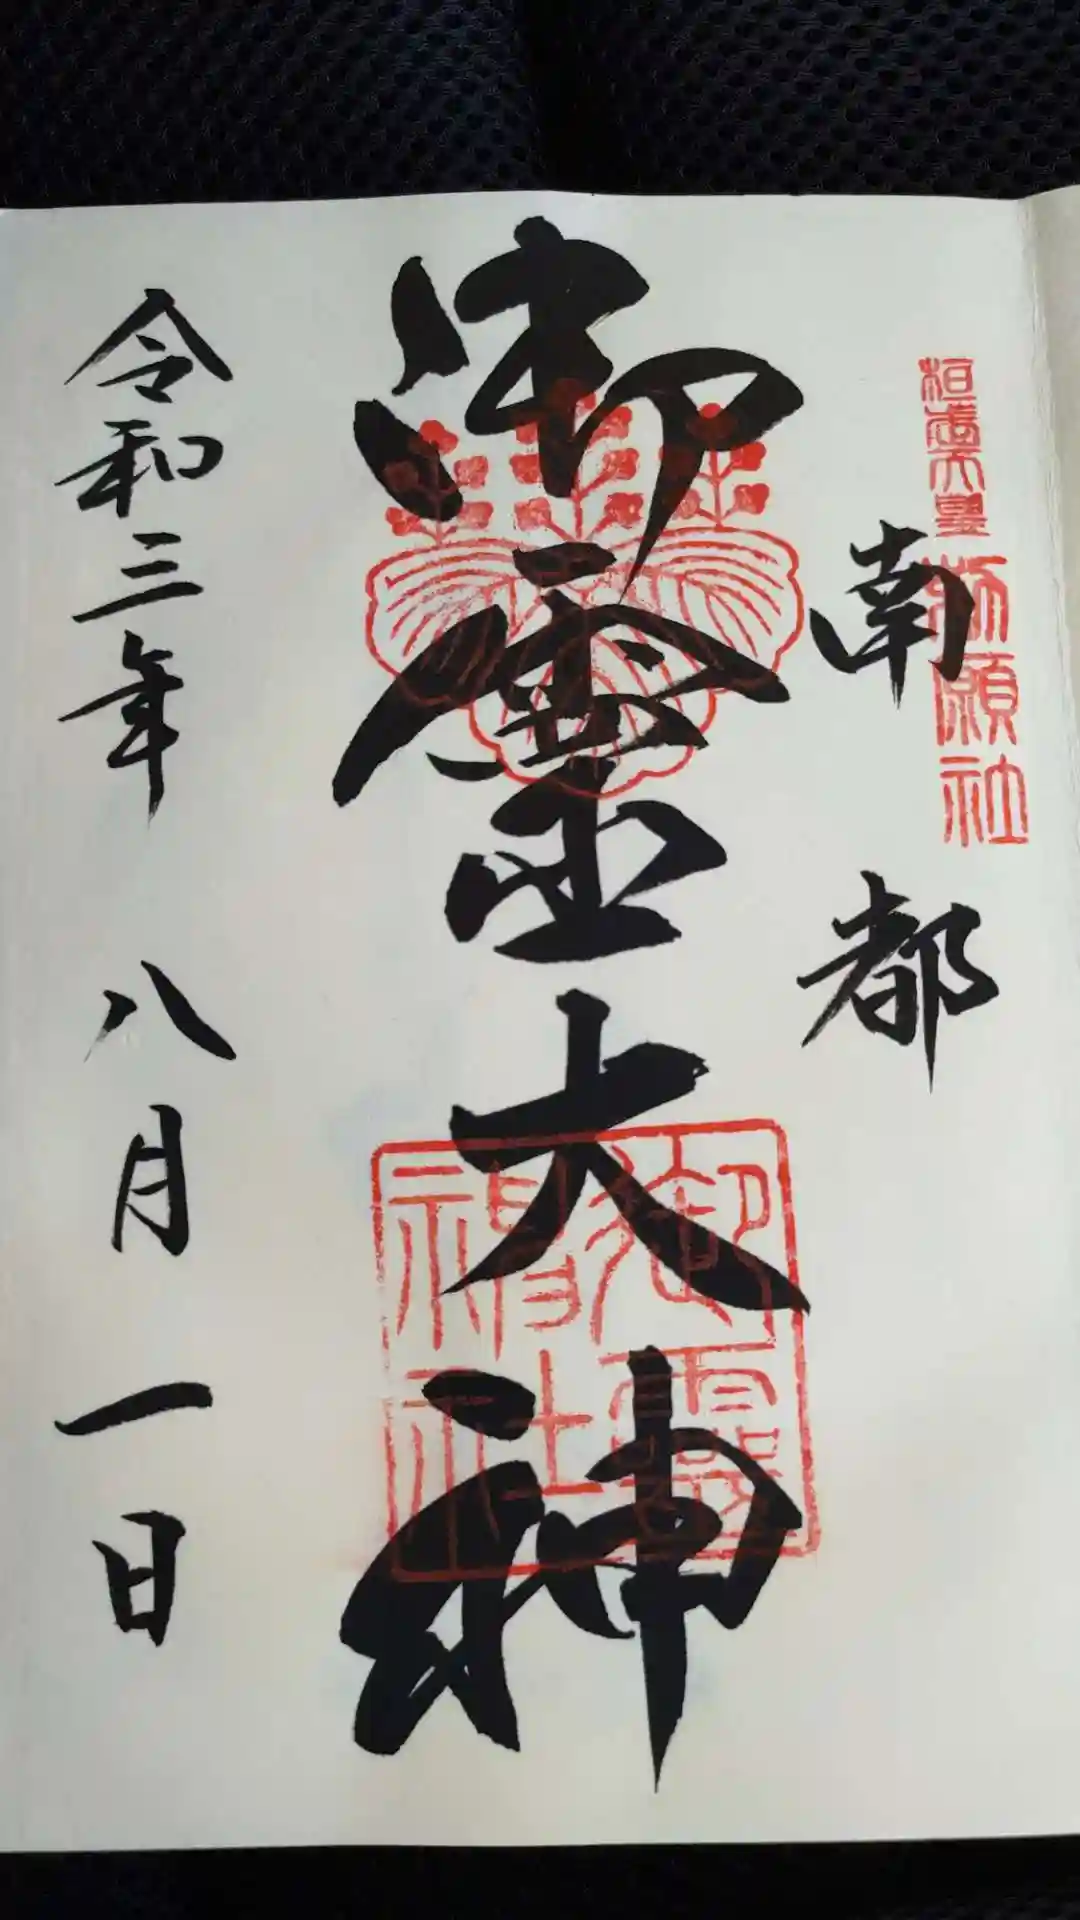 桓武天皇
祈願社
南都
御霊大神
御霊神社
令和三年 八月一日